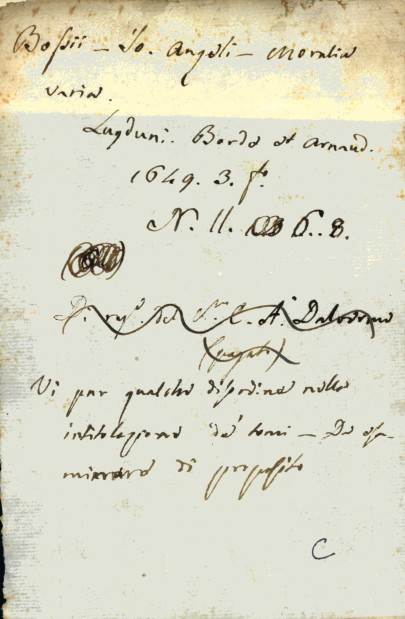 Bossii – Jo. Angeli – Moralia
varia.
Lugduni. Borde et Arnaud.
1649. 3. fo.
N. 11. 6. 8.
(pagato)
Vi par qualche disordine nella
intitolazione de' tomi – Da esa-
minare di proposito
C